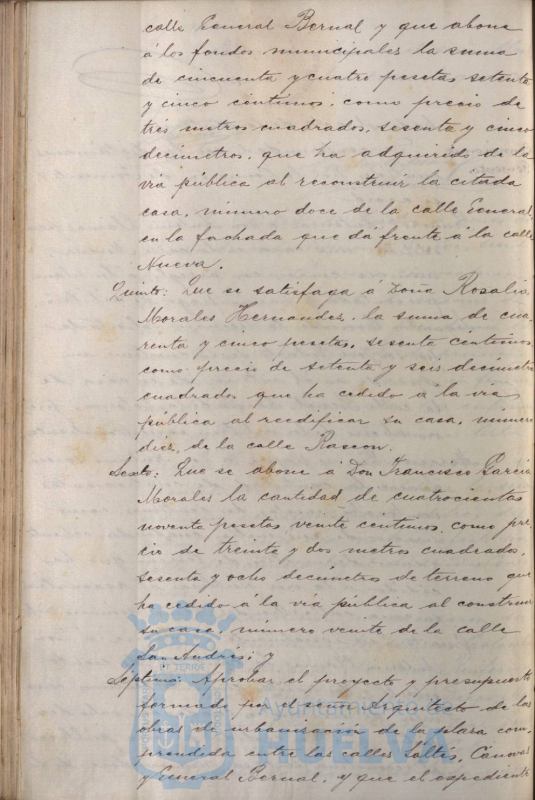 calle General Bernal y que abone
á los fondos municipales la suma
de cincuenta y cuatro pesetas setenta
y cinco céntimos, como precio de
tres metros cuadrados, sesenta y cinco
decimetros, que ha adquirido de la
via pública al reconstruir la citada
casa, número doce de la calle General,
en la fachada que dá frente á la calle
Nueva.
Quinto: Que se satisfaga á Doña Rosalia
Morales Hernandez, la suma de cua-
renta y cinco pesetas, sesenta céntimos
como precio de setenta y seis decimetros
cuadrados que ha cedido á la via
pública al reedificar su casa, número
diez, de la calle Rascon.
Sexto: Que se abone á Don Francisco Garcia
Morales la cantidad de cuatrocientas
noventa pesetas veinte céntimos, como pre-
cio de treinta y dos metros cuadrados,
sesenta y ocho decímetros de terreno que
ha cedido á la via pública al construir
su casa, número veinte de la calle
San Andrés; y
Séptimo: Aprobar el proyecto y presupuesto
formado por el señor Arquitecto de las
obras de urbanización de la plaza com-
prendida entre las calles Saltés, Cánovas
y General Bernal, y que el expediente
Ayuntamiento de
HUELVA